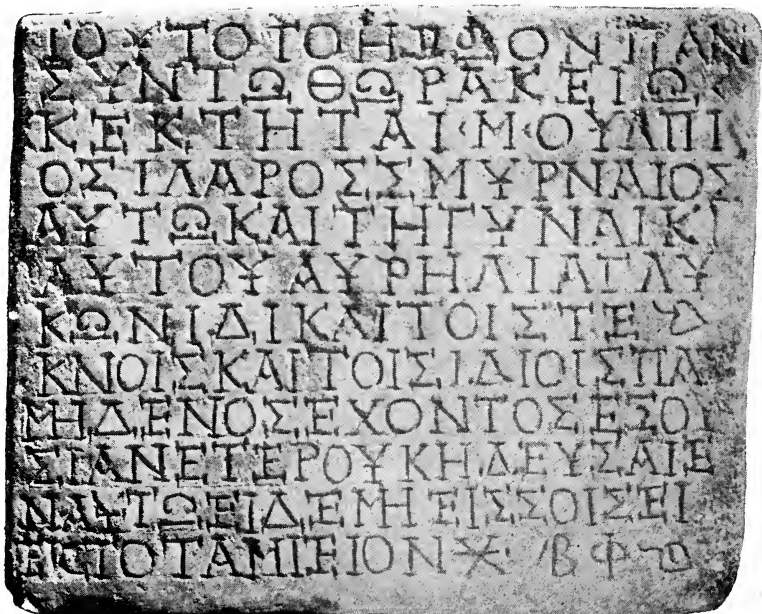 ΤΟΥΤΟΤΟΗΡΩΟΝΠΑΝ
ΣΥΝΤΩΘΩΡΑΚΕΙΩ
ΚΕΚΤΗΤΑΙ·Μ·ΟΥΛΠΙ
ΟΣΙΛΑΡΟΣΣΜΥΡΝΑΙΟΣ
ΑΥΤΩΚΑΙΤΗΓΥΝΑΙΚΙ
ΑΥΤΟΥΑΥΡΗΛΙΑΓΛΥ
ΚΩΝΙΔΙΚΑΙΤΟΙΣΤΕ
ΚΝΟΙΣΚΑΙΤΟΙΣΙΔΙΟΙΣΠΑ
ΜΗΔΕΝΟΣΕΧΟΝΤΟΣΕΞΟΥ
ΣΙΑΝΕΤΕΡΟΥΚΗΔΕΥΣΑΙΕ
ΝΑΥΤΩΕΙΔΕΜΗΕΙΣΣΟΙΣΕΙ
ΡΣΤΟΤΑΜΙΕΙΟΝ𐆖·͵ΒΦ